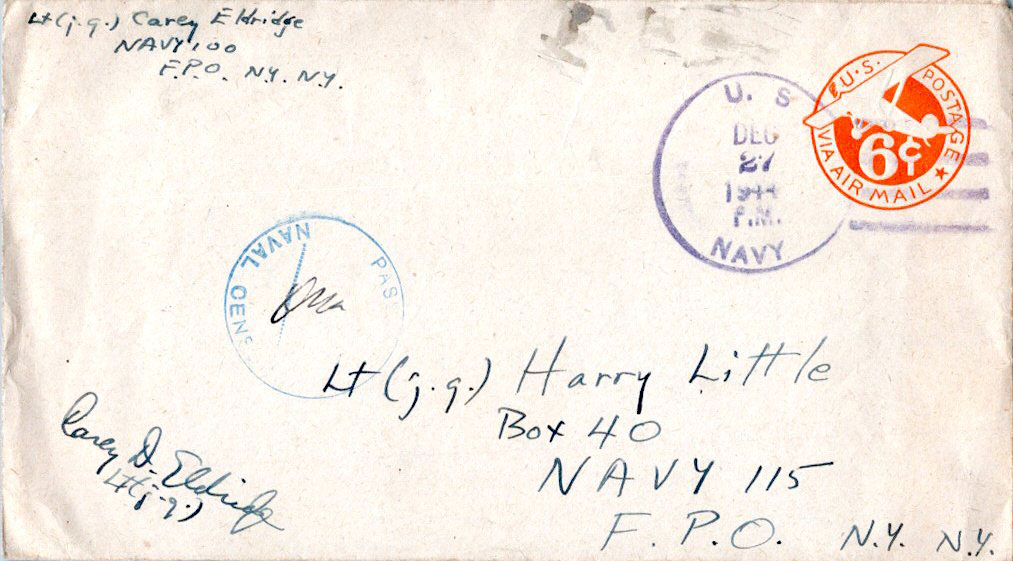 Lt (j.g.) Carey Eldridge
NAVY 100
F.P.O. N.Y. N.Y.
U. S.
DEC
27
1944
P.M.
NAVY
U.S. POSTAGE
6¢
VIA AIR MAIL
PAS
NAVAL CENS
Lt (j.g.) Harry Little
Box 40
NAVY 115
F. P. O. N.Y. N.Y.
Carey D. Eldridge
Lt (j.g.)